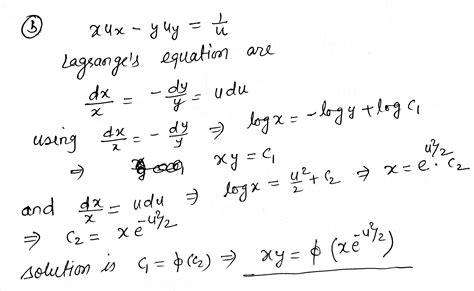 ③ xux - yuy = 1/u
Lagrange's equation are
dx/x = - dy/y = udu
using dx/x = - dy/y ⇒ log x = - log y + log c₁
⇒ xy = c₁
and dx/x = udu ⇒ log x = u²/2 + c₂ ⇒ x = e^(u²/2) · c₂
⇒ c₂ = x e^(-u²/2)
solution is c₁ = ϕ(c₂) ⇒ xy = ϕ (x e^(-u²/2))